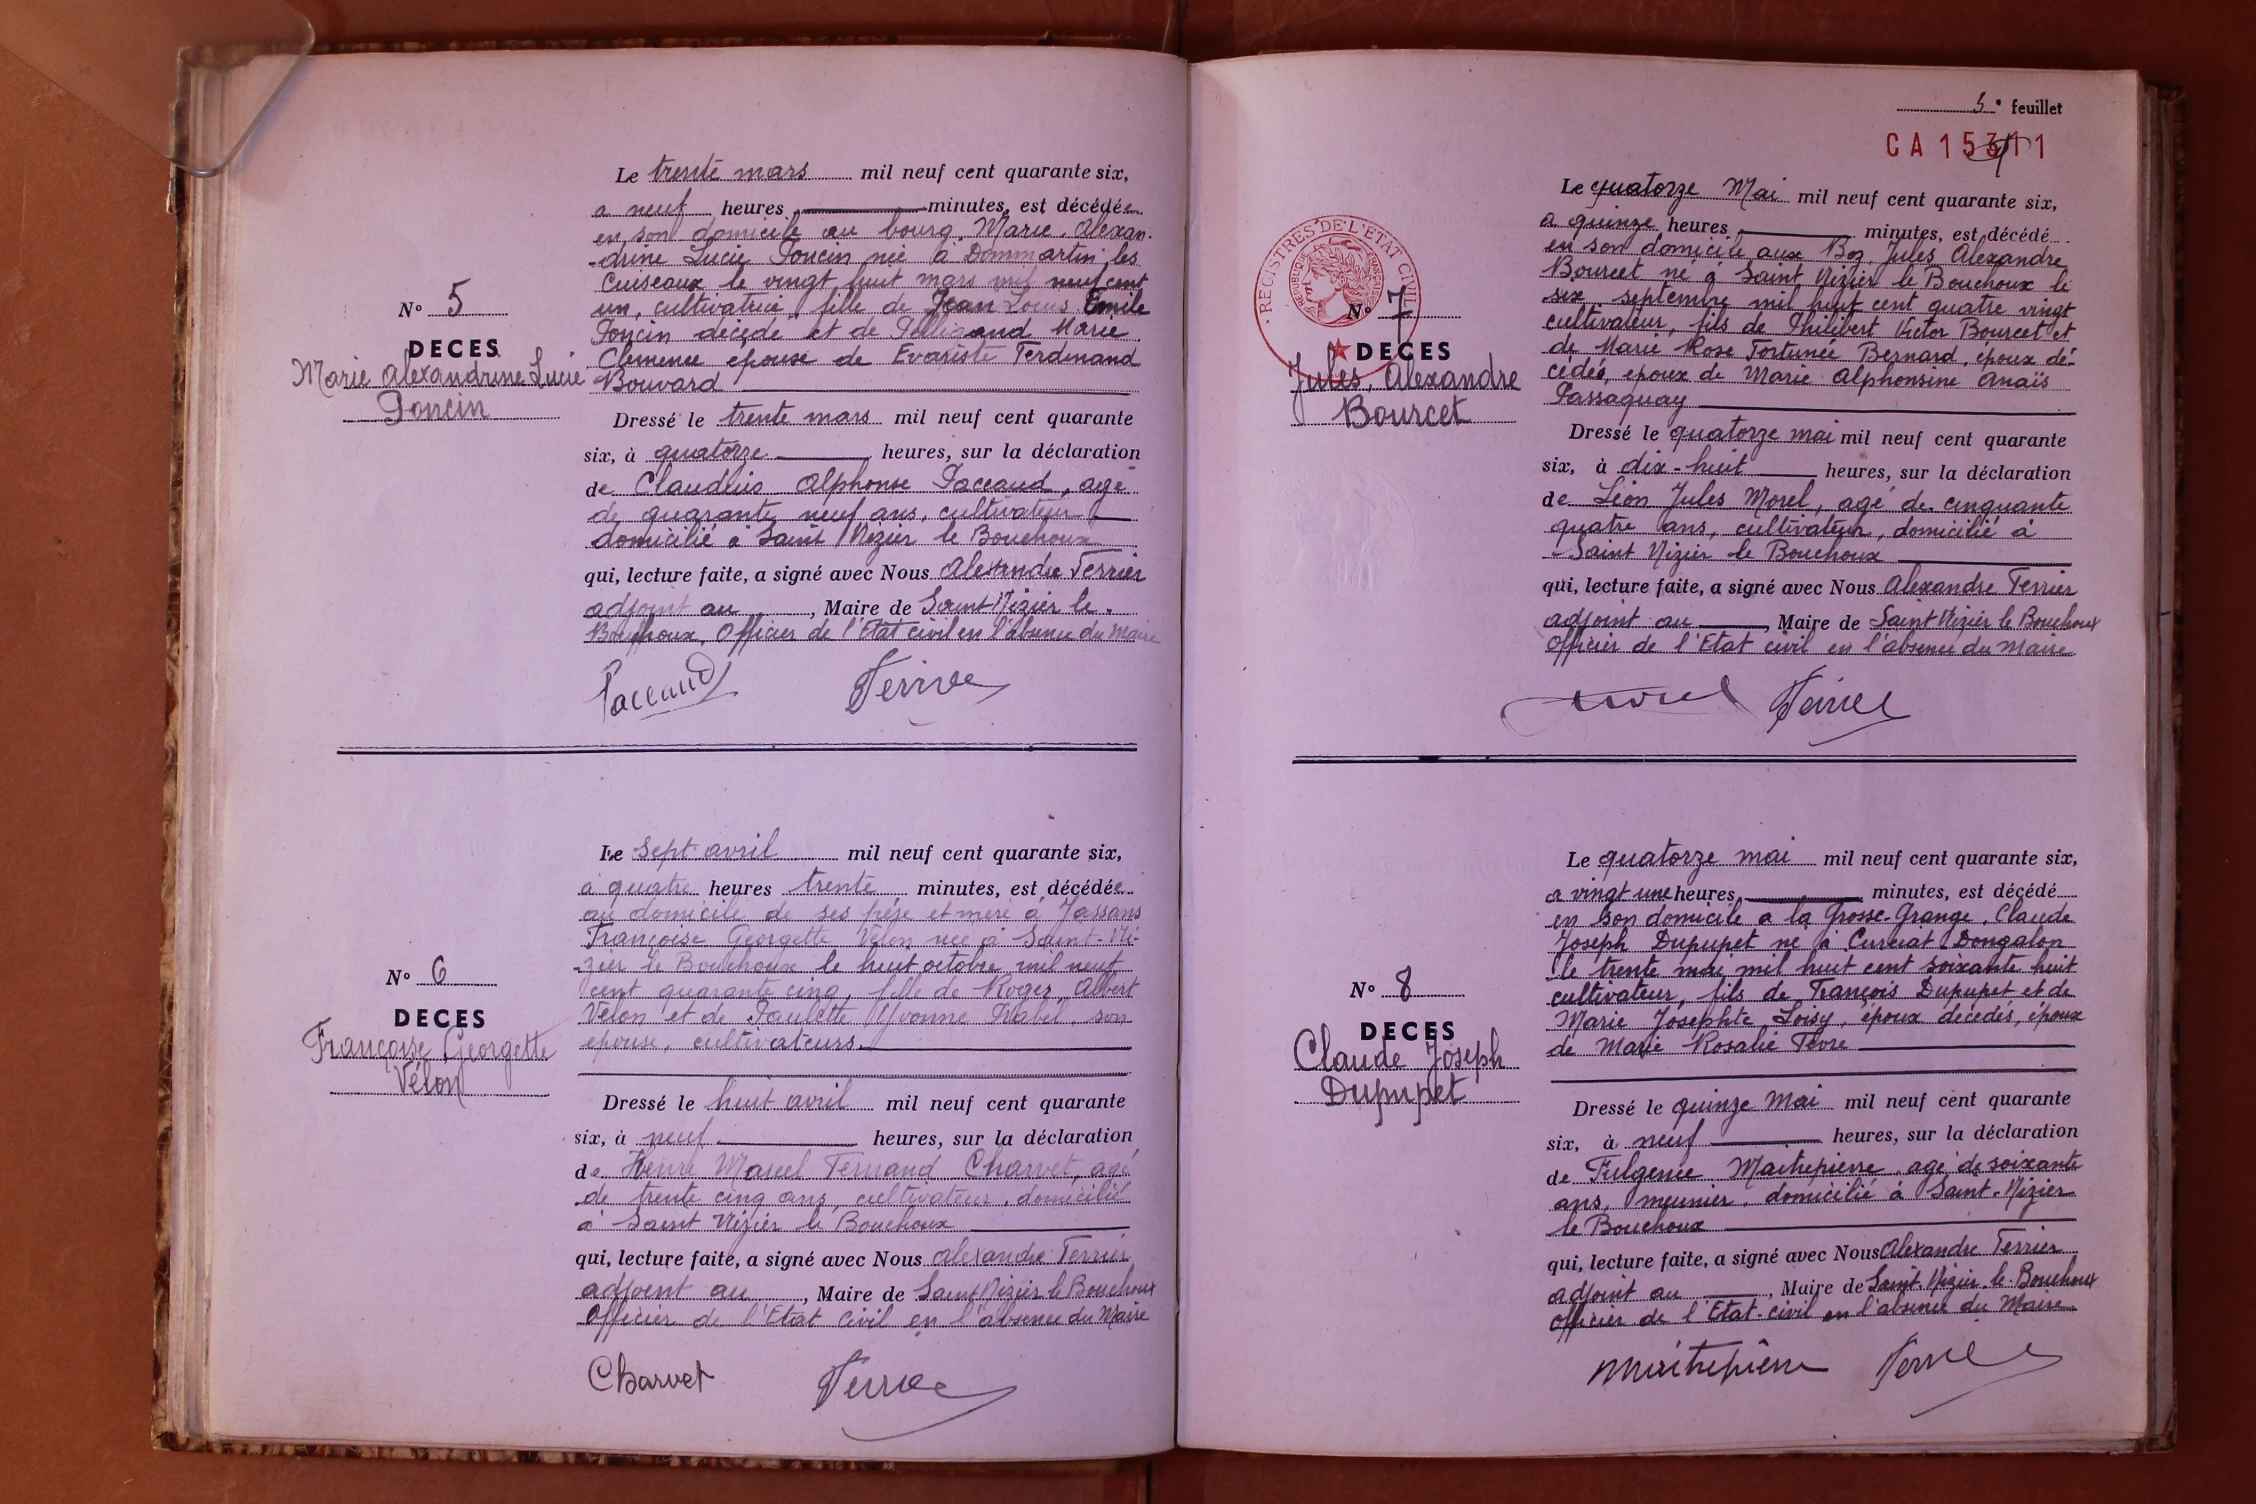 Le trente mars mil neuf cent quarante six,
a neuf heures minutes, est décédée
en son domicile au bourg, Marie Alexan-
-drine Lucie Poncin née à Dommartin les
Cuiseaux le vingt huit mars mil neuf cent
un, cultivatrice, fille de Jean Louis Emile
Poncin décédé et de Marie
Clémence épouse de Evariste Ferdinand
Bouvard
N° 5
DECES
Marie Alexandrine Lucie
Poncin
Dressé le trente mars mil neuf cent quarante
six, à quatorze heures, sur la déclaration
de Claudius Alphonse Paccaud, agé
de quarante neuf ans, cultivateur
domicilié à Saint Nizier le Bouchoux
qui, lecture faite, a signé avec Nous Alexandre Terrier
adjoint au , Maire de Saint Nizier le
Bouchoux, Officier de l'Etat civil en l'absence du Maire
Paccaud Terrier
Le sept avril mil neuf cent quarante six,
a quatre heures trente minutes, est décédée
au domicile de ses père et mère à Jassans
Françoise Georgette Vélon née à Saint-Ni-
-zier le Bouchoux le huit octobre mil neuf
cent quarante cinq, fille de Roger Albert
Vélon et de Paulette Yvonne son
épouse, cultivateurs
N° 6
DECES
Françoise Georgette
Vélon
Dressé le huit avril mil neuf cent quarante
six, à neuf heures, sur la déclaration
de Henri Marcel Fernand Charvet, agé
de trente cinq ans, cultivateur, domicilié
à Saint Nizier le Bouchoux
qui, lecture faite, a signé avec Nous Alexandre Terrier
adjoint au , Maire de Saint Nizier le Bouchoux
Officier de l'Etat Civil en l'absence du Maire
Charvet Terrier
5e feuillet
CA 15311
Le quatorze Mai mil neuf cent quarante six,
a quinze heures minutes, est décédé
en son domicile aux Boz, Jules Alexandre
Bourcet né à Saint Nizier le Bouchoux le
six septembre mil huit cent quatre vingt
cultivateur, fils de Philibert Victor Bourcet et
de Marie Rose Fortunée Bernard, époux dé-
cédés, époux de Marie Alphonsine Anaïs
Passaquay
REGISTRES DE L'ETAT CIVIL
REPUBLIQUE FRANÇAISE
N° 7
DECES
Jules, Alexandre
Bourcet
Dressé le quatorze mai mil neuf cent quarante
six, à dix-huit heures, sur la déclaration
de Léon Jules Morel, agé de cinquante
quatre ans, cultivateur, domicilié à
Saint Nizier le Bouchoux
qui, lecture faite, a signé avec Nous Alexandre Terrier
adjoint au , Maire de Saint Nizier le Bouchoux
Officier de l'Etat civil en l'absence du Maire
Morel Terrier
Le quatorze mai mil neuf cent quarante six,
a vingt une heures minutes, est décédé
en son domicile a la Grosse-Grange, Claude
Joseph Dupupet né à Curciat Dongalon
le trente mai mil huit cent soixante huit
cultivateur, fils de François Dupupet et de
Marie Josephte Loisy, époux décédés, époux
de Marie Rosalie Fèvre
N° 8
DECES
Claude Joseph
Dupupet
Dressé le quinze Mai mil neuf cent quarante
six, à neuf heures, sur la déclaration
de Fulgence Maitrepierre, agé de soixante
ans, meunier, domicilié à Saint-Nizier
le Bouchoux
qui, lecture faite, a signé avec Nous Alexandre Terrier
adjoint au , Maire de Saint-Nizier le Bouchoux
Officier de l'Etat-civil en l'absence du Maire
Maitrepierre Terrier